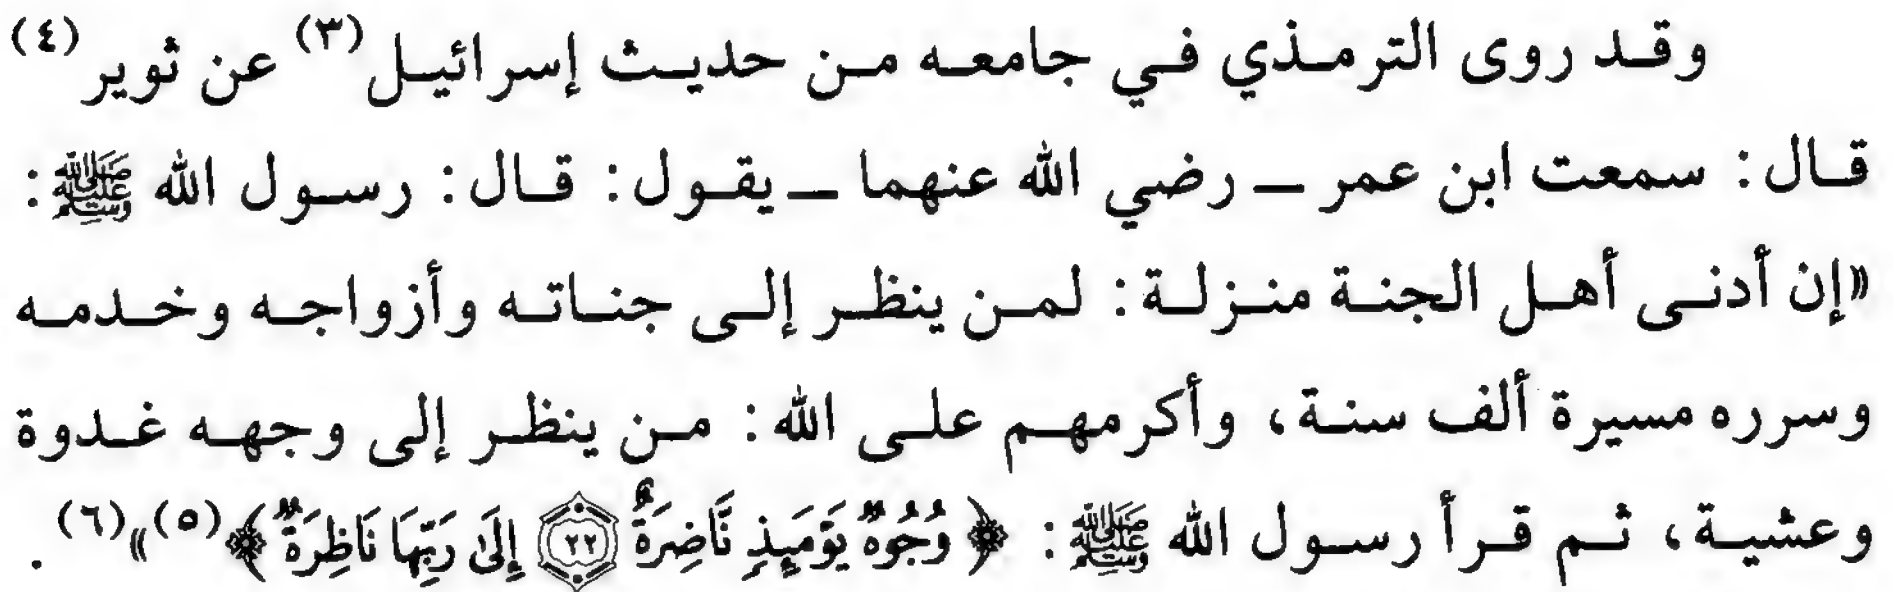 وقد روى الترمذي في جامعه من حديث إسرائيل(٣) عن ثوير(٤)
قال: سمعت ابن عمر ــ رضي الله عنهما ــ يقول: قال: رسول الله ﷺ:
«إن أدنى أهل الجنة منزلة: لمن ينظر إلى جناته وأزواجه وخدمه
وسرره مسيرة ألف سنة، وأكرمهم على الله: من ينظر إلى وجهه غدوة
وعشية، ثم قرأ رسول الله ﷺ: ﴿وُجُوهٌ يَوْمَئِذٍ نَّاضِرَةٌ ٢٢ إِلَىٰ رَبِّهَا نَاظِرَةٌ﴾(٥)»(٦).